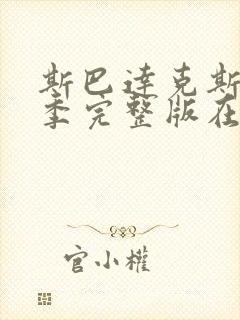 斯巴达克斯
季完整版在
官小權